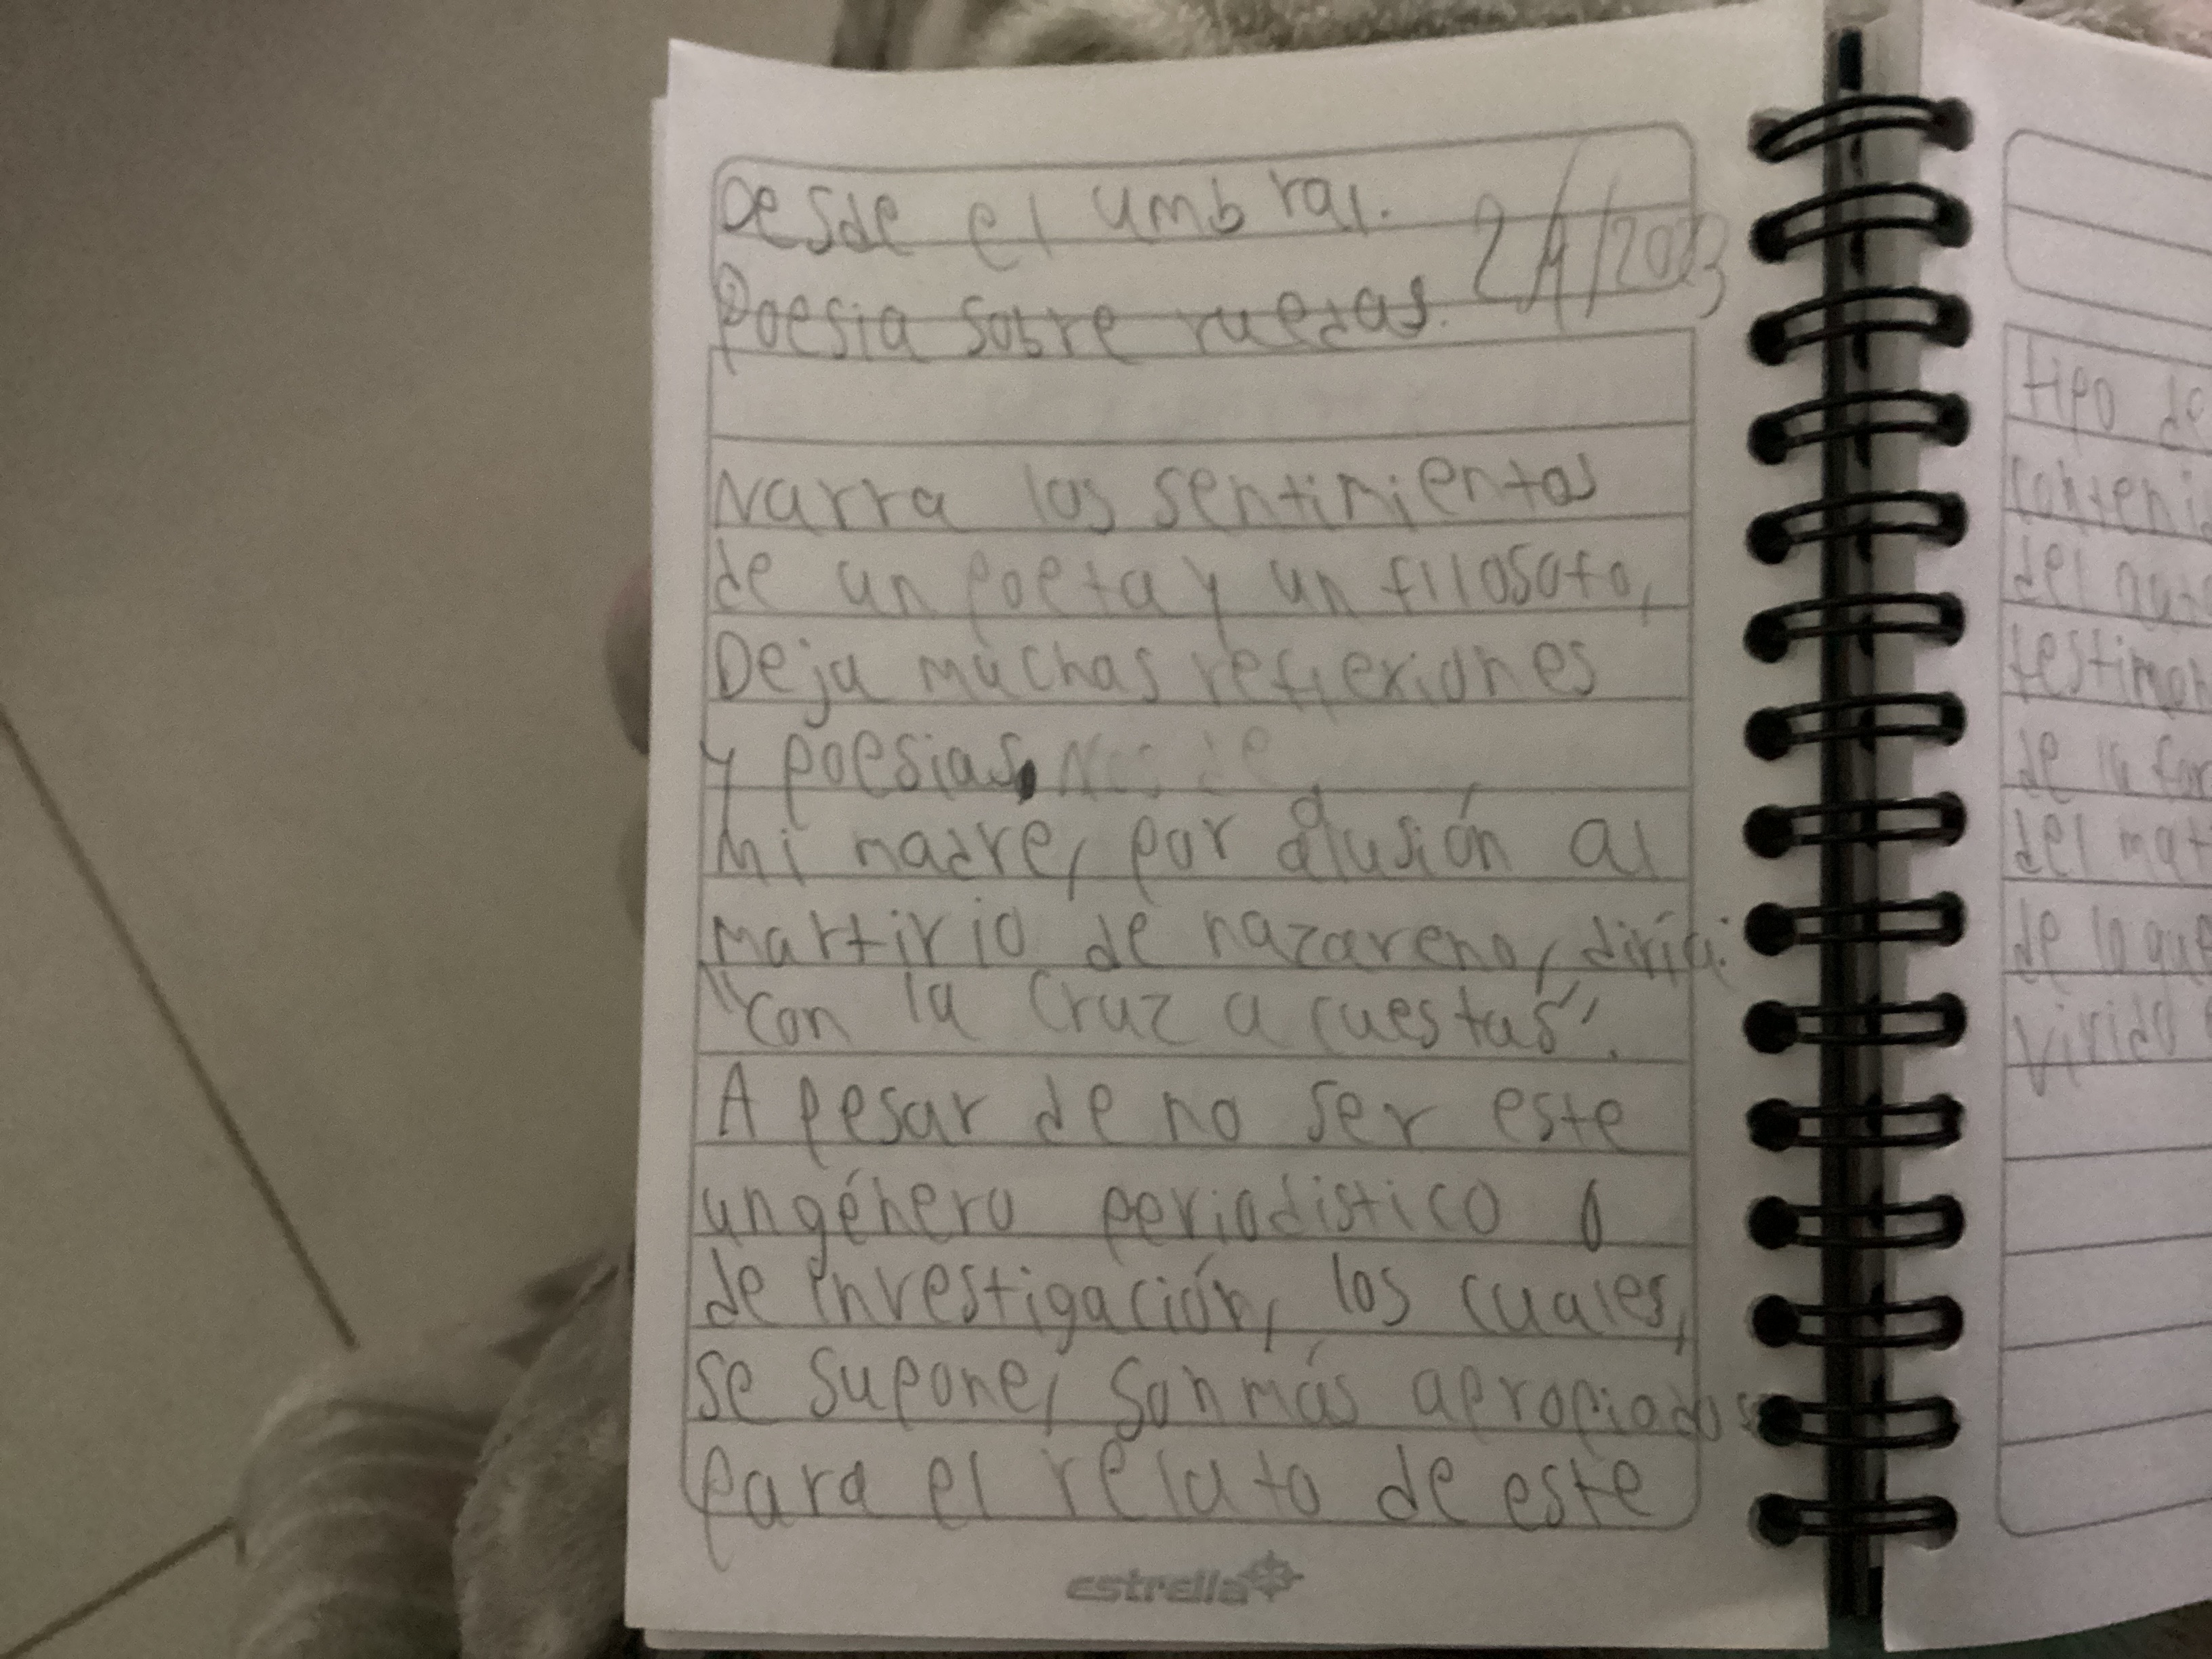 Desde el umbral.
Poesia sobre ruedas. 2/1/2023
Narra los sentimientos
de un poeta y un filosofo,
Deja muchas reflexiones
y poesias,
Mi madre, por alusión al
martirio de nazareno, diría:
"con la Cruz a cuestas".
A pesar de no ser este
un género periodistico o
de investigación, los cuales,
se supone, son más apropiados
para el relato de este
estrella
tipo de
del
de la
del
de lo que